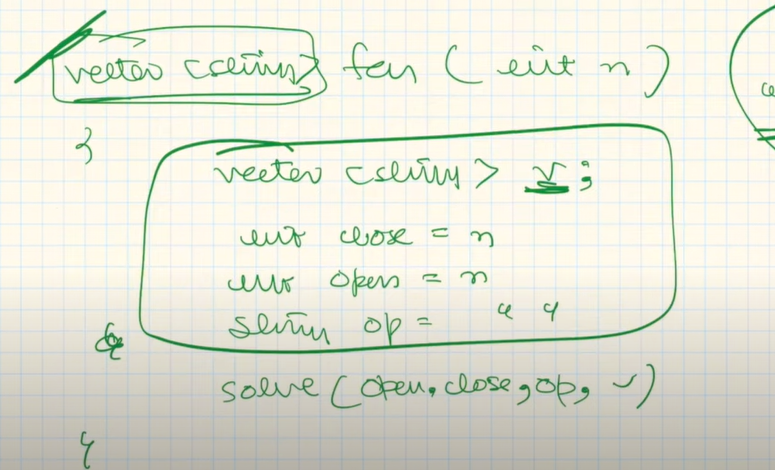 vector <string> fun ( int n )
{
vector <string> v ;
int close = n
int open = n
string op = " "
solve ( open, close, op, v )
}